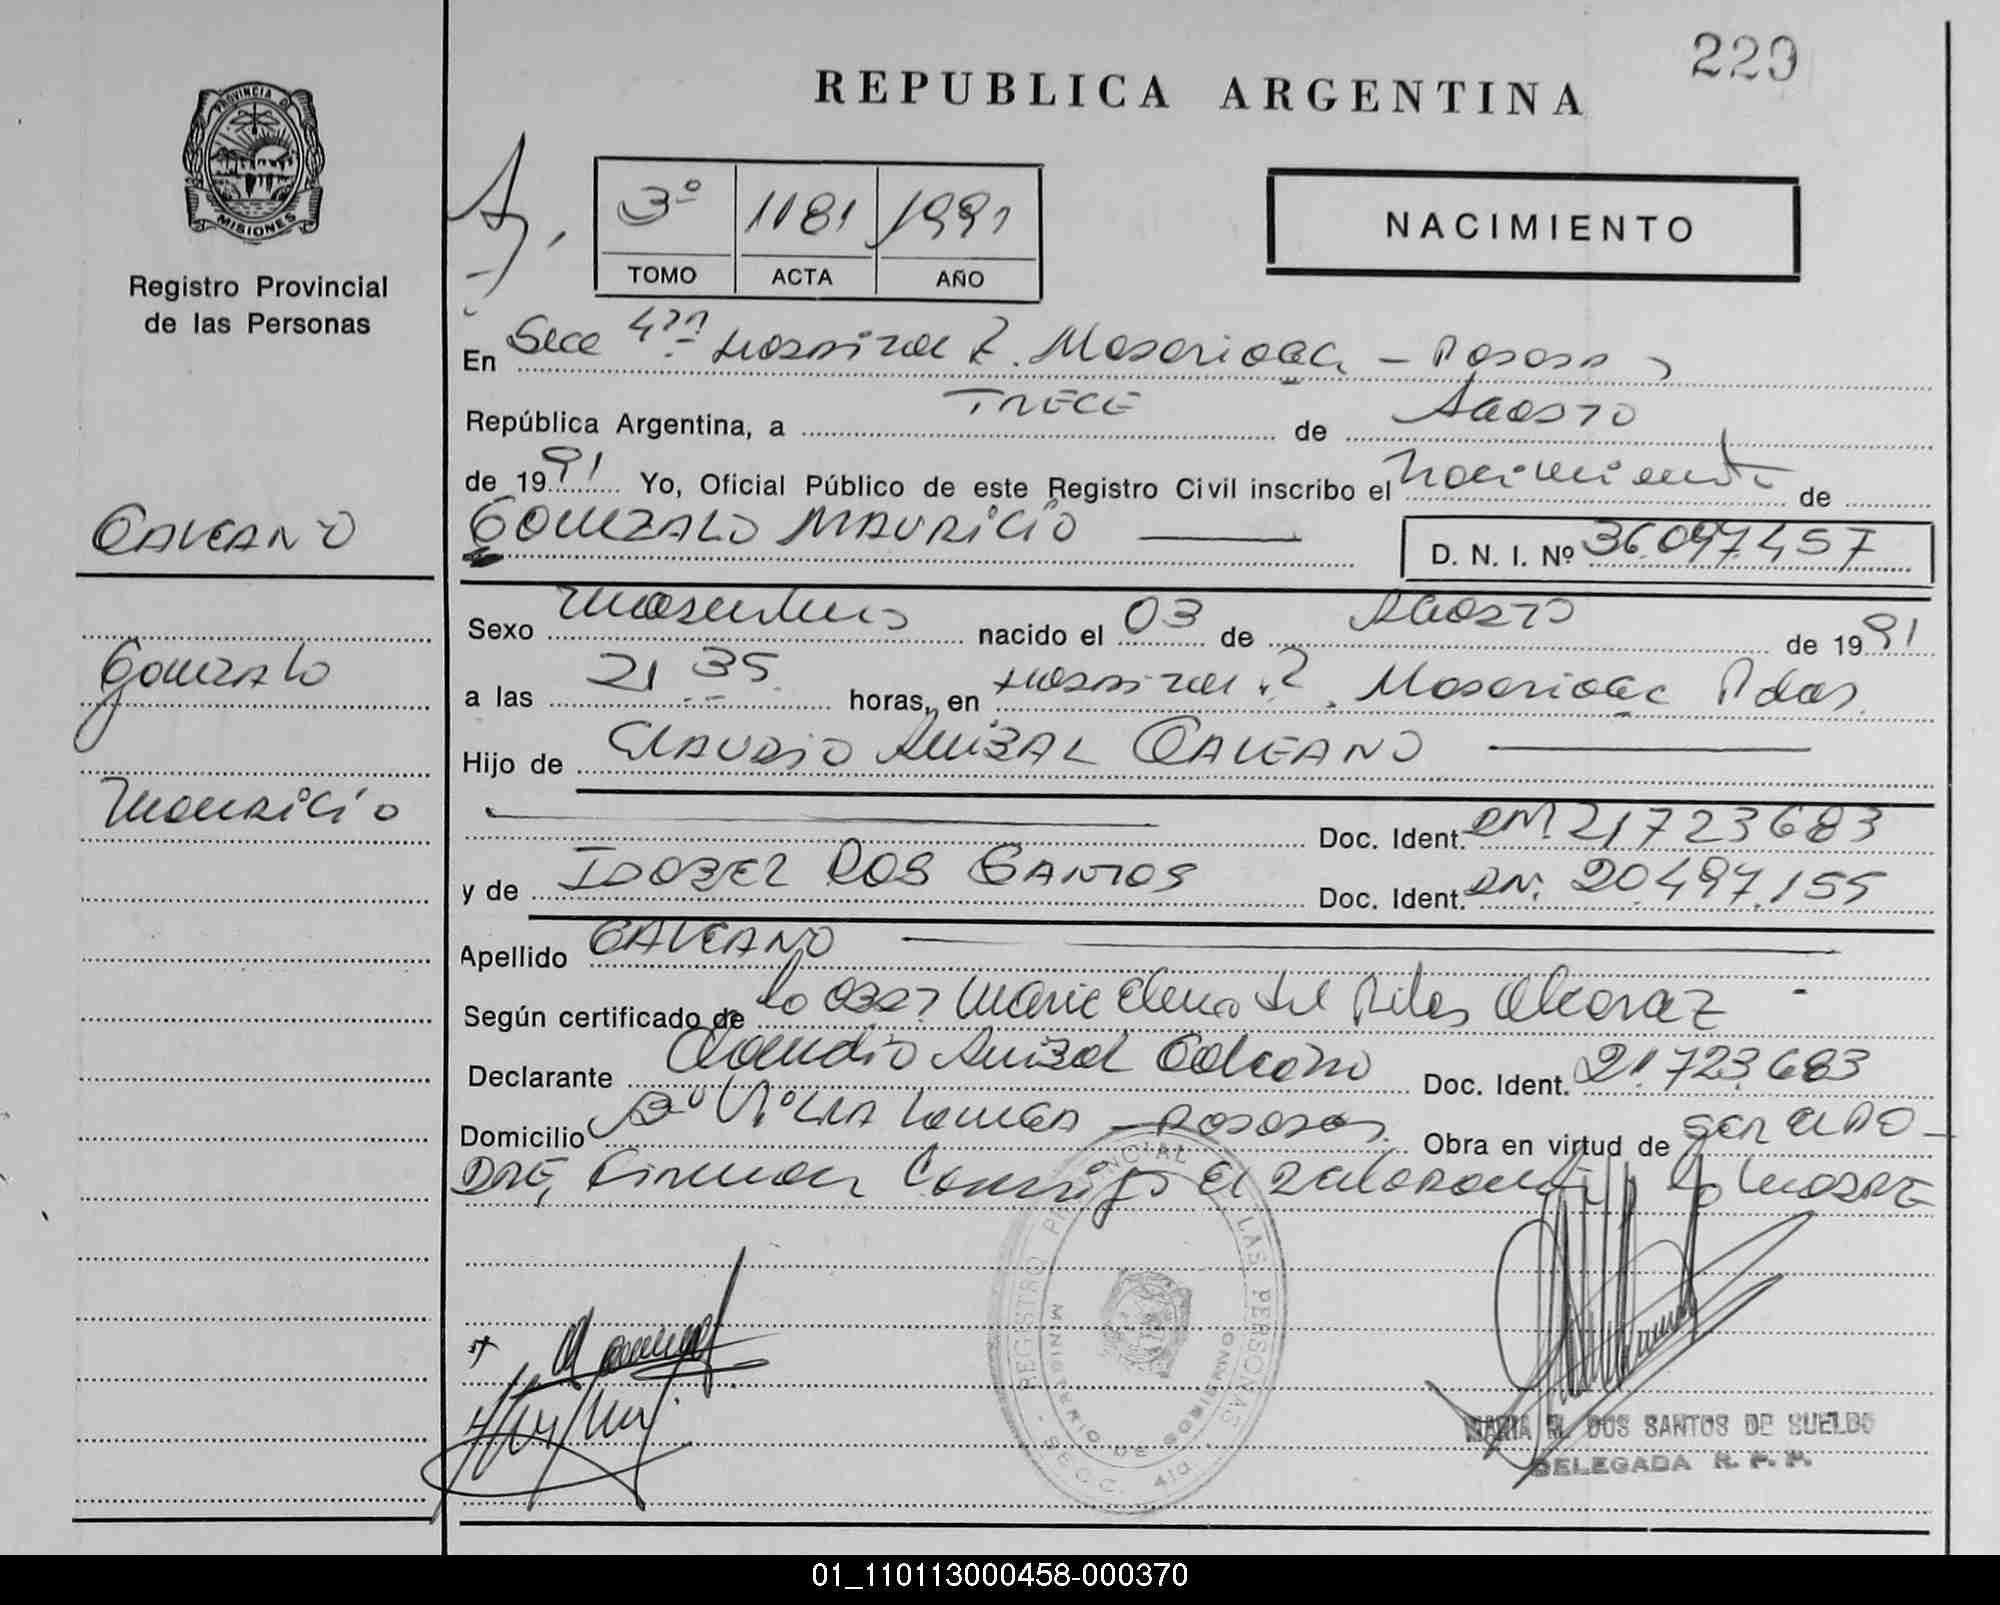 229
REPUBLICA ARGENTINA
PROVINCIA DE
MISIONES
Registro Provincial
de las Personas
3º 1181 1991
TOMO ACTA AÑO
NACIMIENTO
En Secc 4ta Hospital R. Madariaga - Posadas
República Argentina, a TRECE de Agosto
de 1991 Yo, Oficial Público de este Registro Civil inscribo el nacimiento de
GALEANO
GONZALO MAURICIO
D. N. I. Nº 36.097.457
Sexo masculino nacido el 03 de Agosto de 1991
Gonzalo
a las 21 35 horas, en Hospital R. Madariaga Pdas.
Hijo de CLAUDIO ANIBAL GALEANO
Mauricio
Doc. Ident. DNI 21723683
y de DOS SANTOS Doc. Ident. DNI. 20.497.155
Apellido GALEANO
Según certificado de la Obst Maria Elena del Alcaraz
Declarante Claudio Anibal Galeano Doc. Ident. 21.723.683
Domicilio Bº Villa - Posadas. Obra en virtud de ser el PA-
DRE, Firman Conmigo El Declarante y la MADRE
REGISTRO PROVINCIAL LAS PERSONAS
MINISTERIO DE GOBIERNO
SECC. 4ta
MARIA M. DOS SANTOS DE SUELDO
DELEGADA R. P. P.
01_110113000458-000370